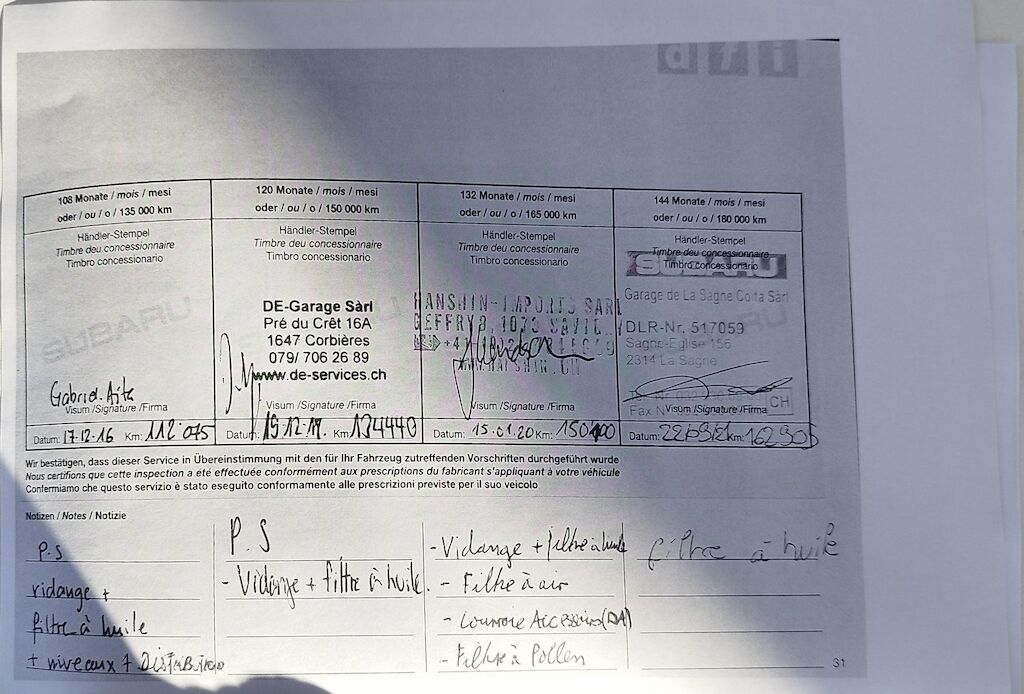 dfi
108 Monate / mois / mesi
oder / ou / o / 135 000 km
Händler-Stempel
Timbre deu concessionnaire
Timbro concessionario
SUBARU
Gabriel Aita
Visum /Signature /Firma
Datum: 17.12.16 Km: 112 075
120 Monate / mois / mesi
oder / ou / o / 150 000 km
Händler-Stempel
Timbre deu concessionnaire
Timbro concessionario
DE-Garage Sàrl
Pré du Crêt 16A
1647 Corbières
079/ 706 26 89
www.de-services.ch
Visum /Signature /Firma
Datum: Km: 134440
132 Monate / mois / mesi
oder / ou / o / 165 000 km
Händler-Stempel
Timbre deu concessionnaire
Timbro concessionario
HANSHIN-IMPORTS SARL
GEFFRY 1073
WWW.HANSHIN.CH
Visum /Signature /Firma
Datum: 15.01.20 Km:
144 Monate / mois / mesi
oder / ou / o / 180 000 km
Händler-Stempel
Timbre deu concessionnaire
Timbro concessionario
SUBARU
Garage de La Sagne Coita Sàrl
DLR-Nr. 517059
Sagne-Eglise 156
2314 La Sagne
Fax CH
Visum /Signature /Firma
Datum: Km:
Wir bestätigen, dass dieser Service in Übereinstimmung mit den für Ihr Fahrzeug zutreffenden Vorschriften durchgeführt wurde
Nous certifions que cette inspection a été effectuée conformément aux prescriptions du fabricant s'appliquant à votre véhicule
Confermiamo che questo servizio è stato eseguito conformamente alle prescrizioni previste per il suo veicolo
Notizen / Notes / Notizie
P.S
vidange +
filtre à huile
+ niveaux + Distribution
P.S
- Vidange + filtre à huile.
- Vidange + filtre à huile
- Filtre à air
- Courroie Accessoires (DA)
- Filtre à Pollen
filtre à huile
31